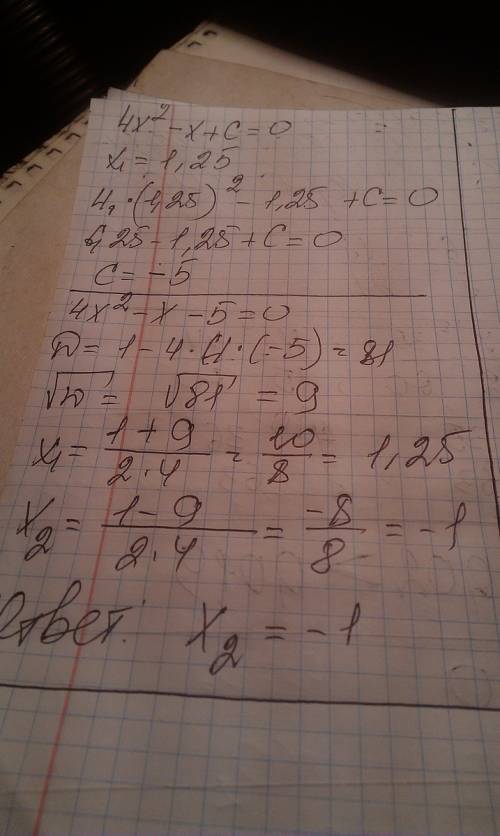 4x² - x + c = 0
x₁ = 1,25
4 · (1,25)² - 1,25 + c = 0
6,25 - 1,25 + c = 0
c = -5
4x² - x - 5 = 0
D = 1 - 4 · 4 · (-5) = 81
√D = √81 = 9
x₁ = (1 + 9)/(2 · 4) = 10/8 = 1,25
x₂ = (1 - 9)/(2 · 4) = -8/8 = -1
Ответ: x₂ = -1